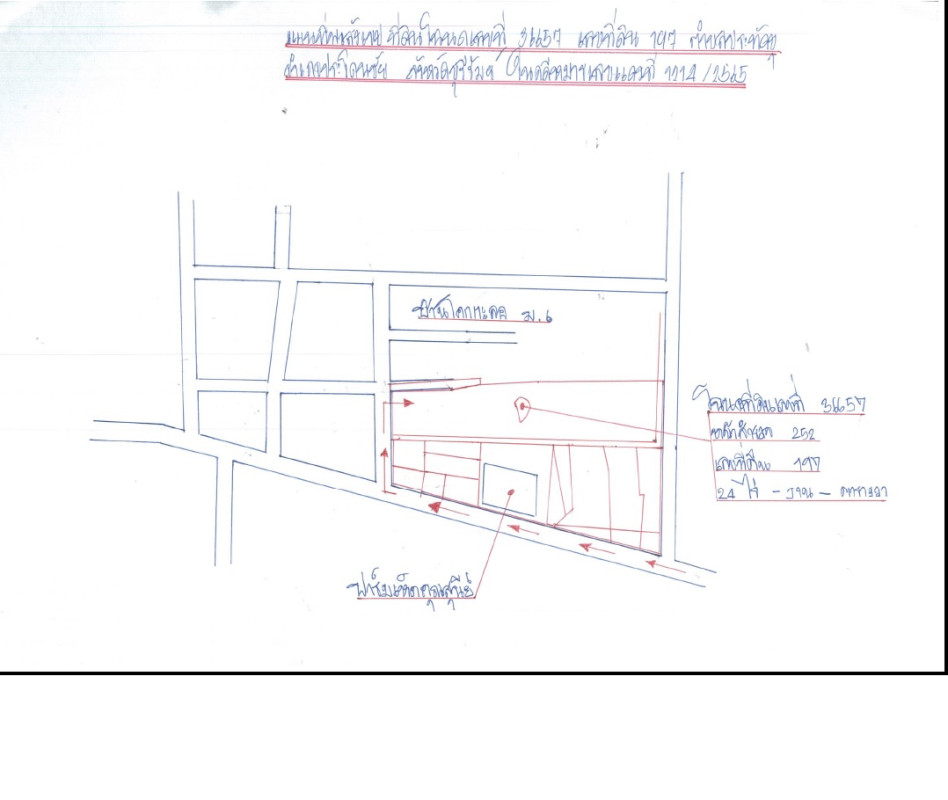 แผนที่พอสังเขป ที่ดินโฉนดเลขที่ 31657 เลขที่ดิน 197 ตำบลประทัดบุ
อำเภอประโคนชัย จังหวัดบุรีรัมย์ ในคดีหมายเลขแดงที่ 1214/2565
บ้านโคกทะลอก ม.6
โฉนดที่ดินเลขที่ 31657
หน้าสำรวจ 252
เลขที่ดิน 197
24 ไร่ - งาน - ตารางวา
ฟาร์มเห็ดคุณสุนีย์